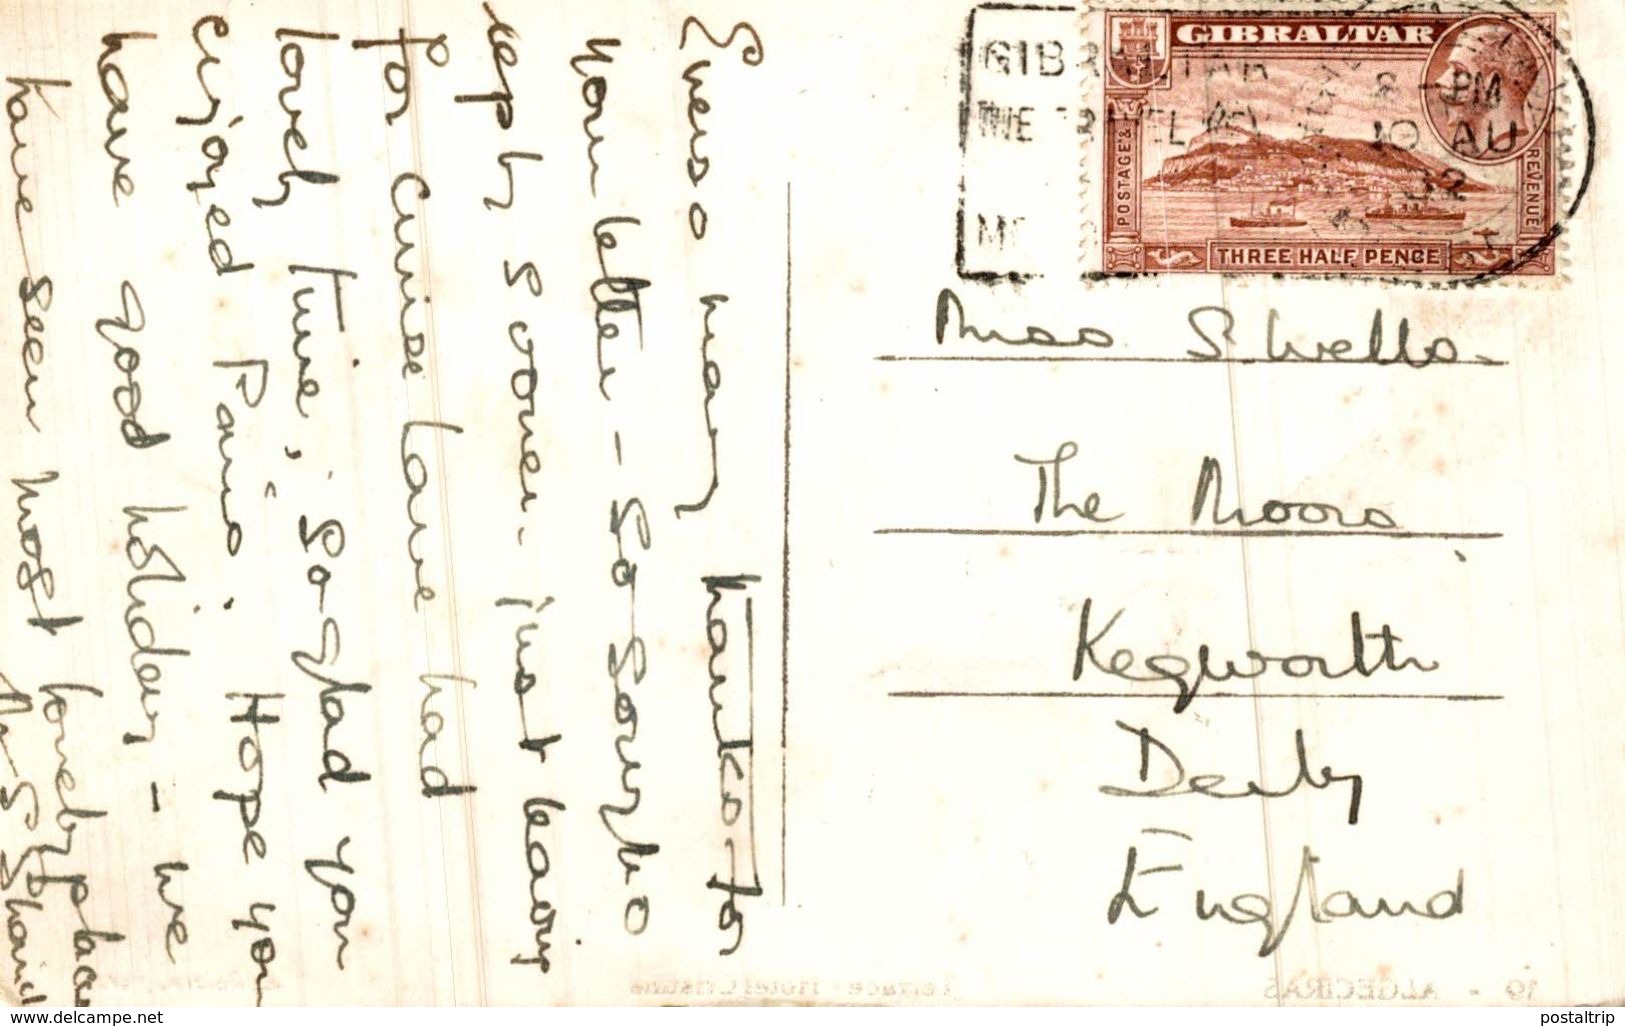 Ever so many thanks for
your letter - So sorry no
reply sooner - just leaving
for cruise have had
lovely time, So glad you
enjoyed Paris. Hope you
have good holiday - we
have seen most lovely places
GIBRALTAR
8 - PM
10 AU
32
GIBRALTAR
POSTAGE &
REVENUE
THREE HALF PENCE
Miss S. Wells.
The Moors
Kegworth
Derby
England
19 - ALGECIRAS
Terrace Hotel Cristina
www.delcampe.net
postaltrip